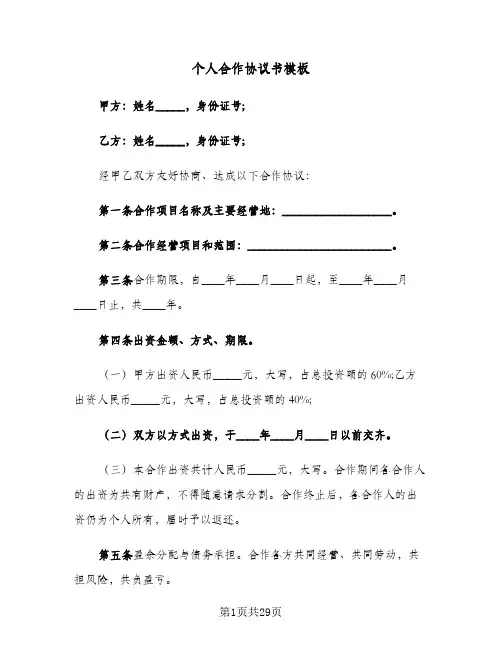 个人合作协议书模板
甲方：姓名_____，身份证号;
乙方：姓名_____，身份证号;
经甲乙双方友好协商、达成以下合作协议：
第一条合作项目名称及主要经营地：___________________。
第二条合作经营项目和范围：_________________________。
第三条合作期限，自____年____月____日起，至____年____月
____日止，共____年。
第四条出资金额、方式、期限。
（一）甲方出资人民币_____元，大写，占总投资额的60%;乙方
出资人民币_____元，大写，占总投资额的40%;
（二）双方以方式出资，于____年____月____日以前交齐。
（三）本合作出资共计人民币_____元，大写。合作期间各合作人
的出资为共有财产，不得随意请求分割。合作终止后，各合作人的出
资仍为个人所有，届时予以返还。
第五条盈余分配与债务承担。合作各方共同经营、共同劳动，共
担风险，共负盈亏。
第1页共29页